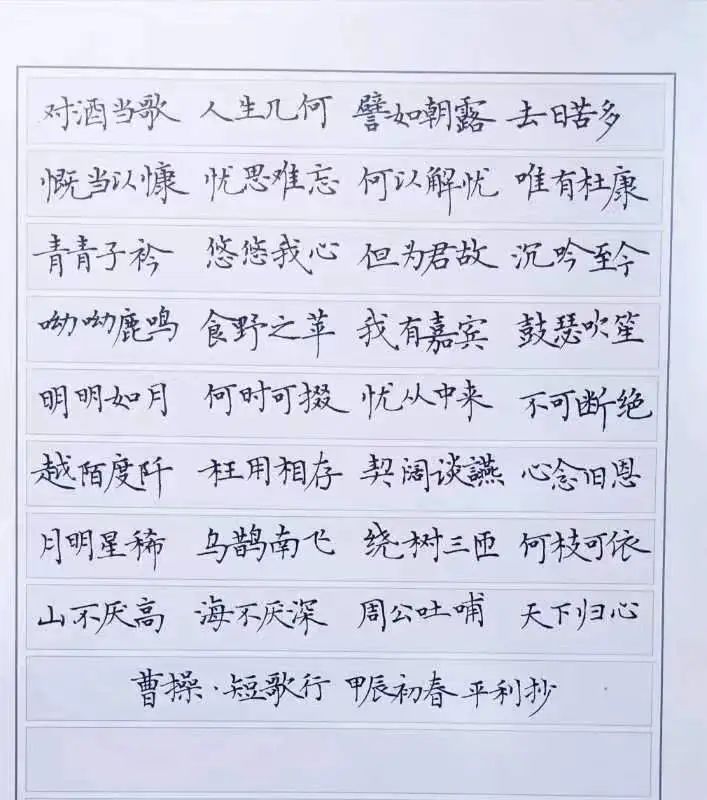 对酒当歌 人生几何 譬如朝露 去日苦多
慨当以慷 忧思难忘 何以解忧 唯有杜康
青青子衿 悠悠我心 但为君故 沉吟至今
呦呦鹿鸣 食野之苹 我有嘉宾 鼓瑟吹笙
明明如月 何时可掇 忧从中来 不可断绝
越陌度阡 枉用相存 契阔谈䜩 心念旧恩
月明星稀 乌鹊南飞 绕树三匝 何枝可依
山不厌高 海不厌深 周公吐哺 天下归心
曹操·短歌行 甲辰初春 平利抄